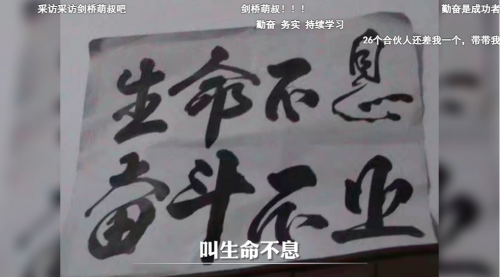 采访采访剑桥萌叔吧
剑桥萌叔！！！
勤奋是成功者
勤奋 务实 持续学习
26个合伙人还差我一个，带带我
生命不息
奋斗不止
叫生命不息